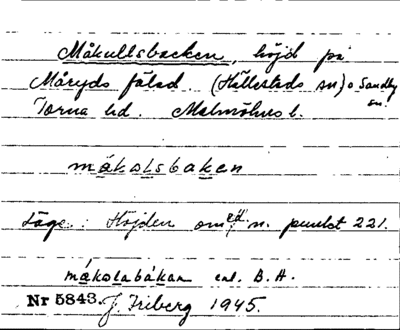 Måkullsbacken, höjd på
Måryds fälad (Hällestads sn) o Sandby sn.
Torna hd. Malmöhus l.
måkolsbaken
Läge: Höjden om ed. n. punkt 221.
måkolabakan enl. B.H.
Nr 5843. J. Friberg 1945.